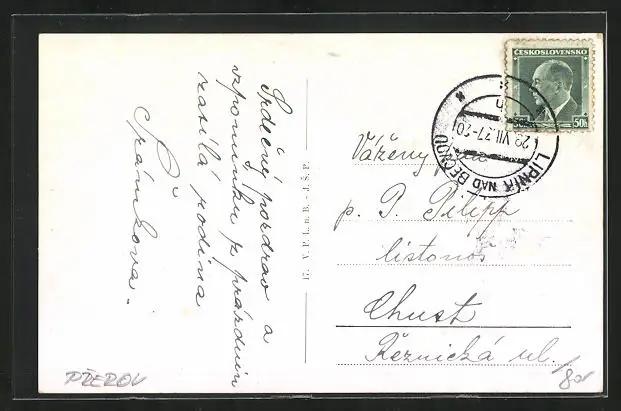 Srdečný pozdrav a
vzpomínku z prázdnin
zasílá rodina
Špánikova.
17. V. P. L. n. B. - J. Š. P.
ČESKOSLOVENSKO
50h 50h
LIPNÍK NAD BEČVOU
29.VII.37-20
Vážený pán
p. P. Pilipp
listonoš
Chust
Řeznická ul.
PŘEROV
80,-